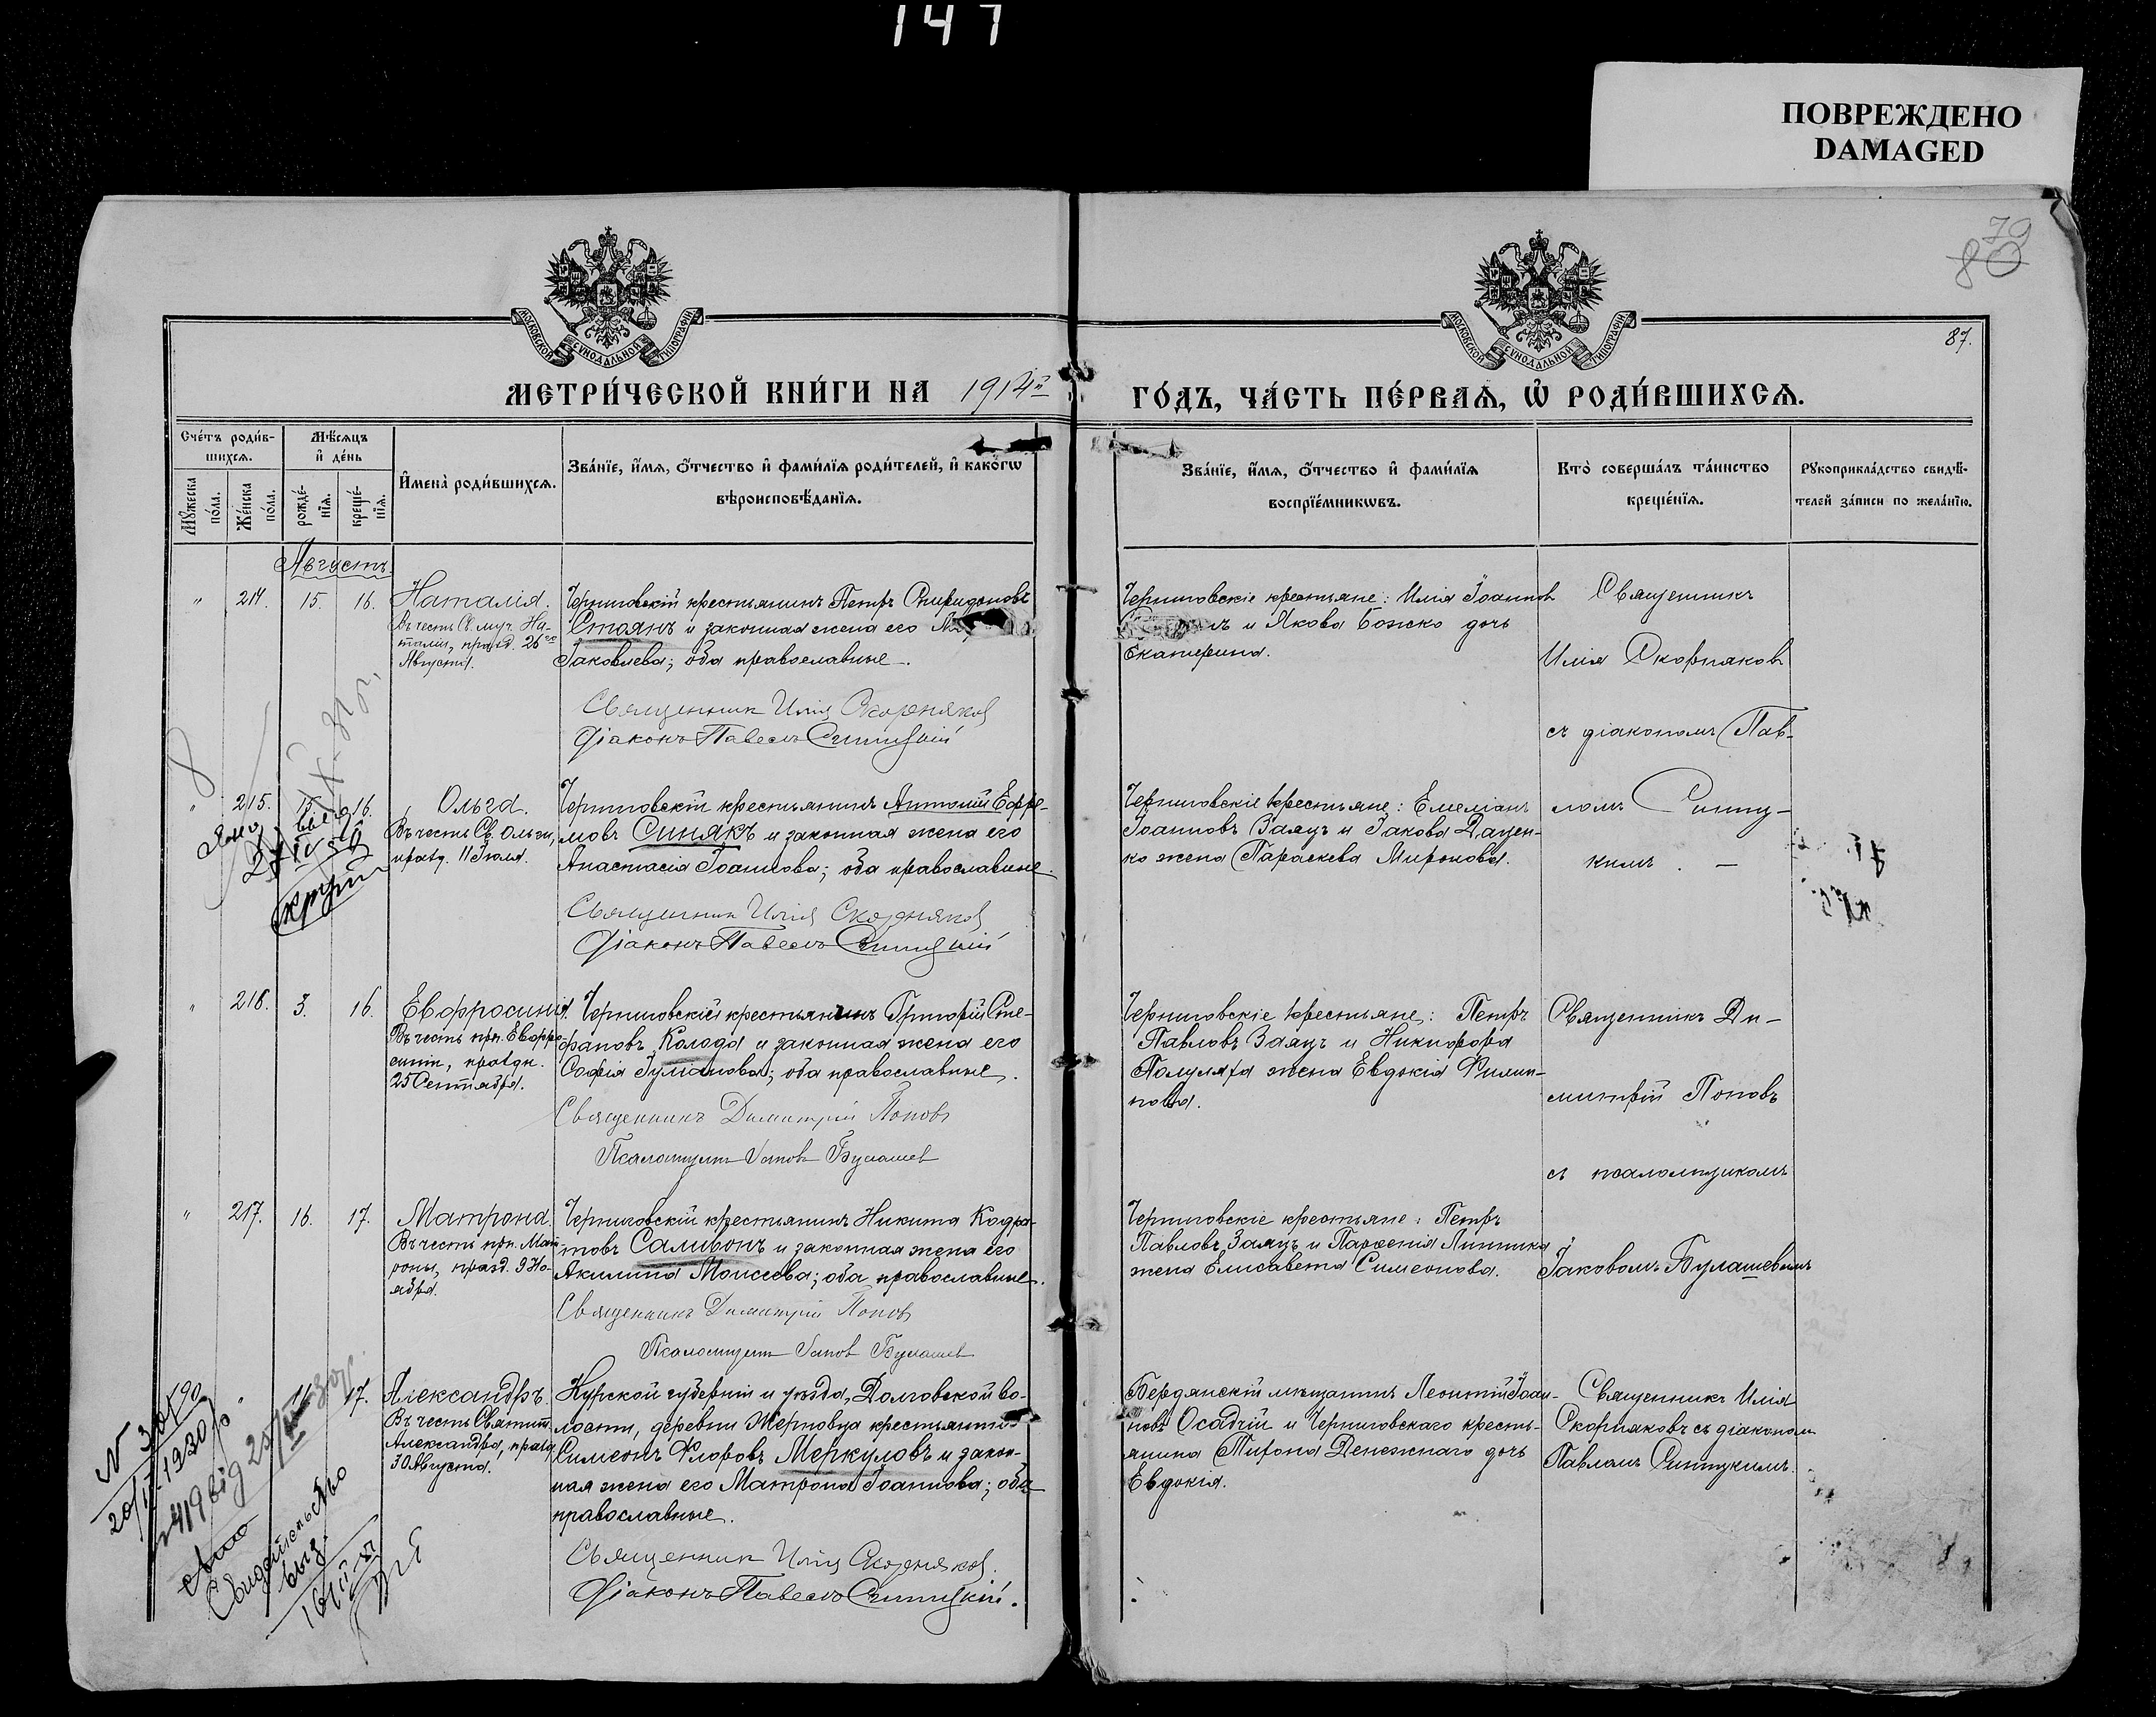 147
ПОВРЕЖДЕНО
DAMAGED
79
80
87.
МОСКОВСКОЙ СѴНОДАЛЬНОЙ ТИПОГРАФІИ
МОСКОВСКОЙ СѴНОДАЛЬНОЙ ТИПОГРАФІИ
МЕТРИ́ЧЕСКОЙ КНИ́ГИ НА 1914й
ГО́ДЪ, ЧА́СТЬ ПЕ́РВАѦ, Ѽ РОДИ́ВШИХСѦ.
Сче́тъ роди́в-
шихсѧ.
Мѣ́сѧцъ
и҆ де́нь
Мꙋ́жеска
по́ла.
Же́нска
по́ла.
рожде́-
нїѧ.
креще́-
нїѧ.
И҆мена̀ роди́вшихсѧ.
Зва́нїе, и҆́мѧ, ѻ҆́тчество и҆ фами́лїѧ роди́телей, и҆ како́гѡ
вѣроисповѣ́данїѧ.
Зва́нїе, и҆́мѧ, ѻ҆́тчество и҆ фами́лїѧ
воспрїе́мникѡвъ.
Кто̀ соверша́лъ та́инство
креще́нїѧ.
Рꙋкоприкла́дство свидѣ́-
телей за́писи по жела́нїю.
Августъ
" 214. 15. 16. Наталія.
Въ честь Св. муч. На-
таліи, празд. 26го
Августа.
Черниговскій крестьянинъ Петръ Спиридоновъ
Стоянъ и законная жена его
Іаковлева; оба православные.
Священник Илія Скорняков
Діаконъ Павелъ Синицкій
Черниговскіе крестьяне: Илія Іоаннов
и Якова Божко дочь
Екатерина.
Священникъ
Илія Скорняков
съ діакономъ Пав-
ломъ Синиц-
кимъ. —
" 215. 15. 16. Ольга.
Въ честь Св. Ольги,
празд. 11 Іюля.
Черниговскій крестьянинъ Антоній Ефре-
мовъ Синякъ и законная жена его
Анастасія Іоаннова; оба православные.
Священник Илія Скорняков
Діаконъ Павелъ Синицкій
Черниговскіе крестьяне: Емеліанъ
Іоанновъ Заяцъ и Іакова Дацен-
ко жена Параскева Миронова.
" 216. 3. 16. Евфросинія.
Въ честь прп. Евфро-
синіи, праздн.
25 Сентября.
Черниговскій крестьянинъ Григорій Сте-
фановъ Колода и законная жена его
Софія Іуліанова; оба православные.
Священникъ Димитрій Поповъ
Псаломщикъ Іаков Булашев
Черниговскіе крестьяне: Петръ
Павловъ Заяцъ и Никифора
жена Евдокія Филип-
пова.
Священникъ Ди-
митрій Поповъ
съ псаломщикомъ
Іаковомъ Булашевымъ
" 217. 16. 17. Матрона.
Въ честь прп. Мат-
роны, празд. 9 Но-
ября.
Черниговскій крестьянинъ Никита Кодра-
товъ Саливонъ и законная жена его
Акилина Моисеева; оба православные.
Священникъ Димитрій Попов
Псаломщикъ Іаков Булашев
Черниговскіе крестьяне: Петръ
Павловъ Заяцъ и Парѳенія Линника
жена Елисавета Симеонова.
17. Александръ.
Въ честь Святит.
Александра, празд.
30 Августа.
Курской губерніи и уѣзда, Долговской во-
лости, деревни Жерновца крестьянинъ
Симеонъ Флоровъ Меркуловъ и закон-
ная жена его Матрона Іоаннова; оба
православные.
Священник Илія Скорняков.
Діаконъ Павелъ Синицкій.
Бердянскій мѣщанинъ Леонтій Іоан-
новъ Осадчій и Черниговскаго кресть-
янина Тифона Денежнаго дочь
Евдокія.
Священникъ Илія
Скорняковъ съ діакономъ
Павломъ Синицкимъ.
Свидѣтельство
выд.